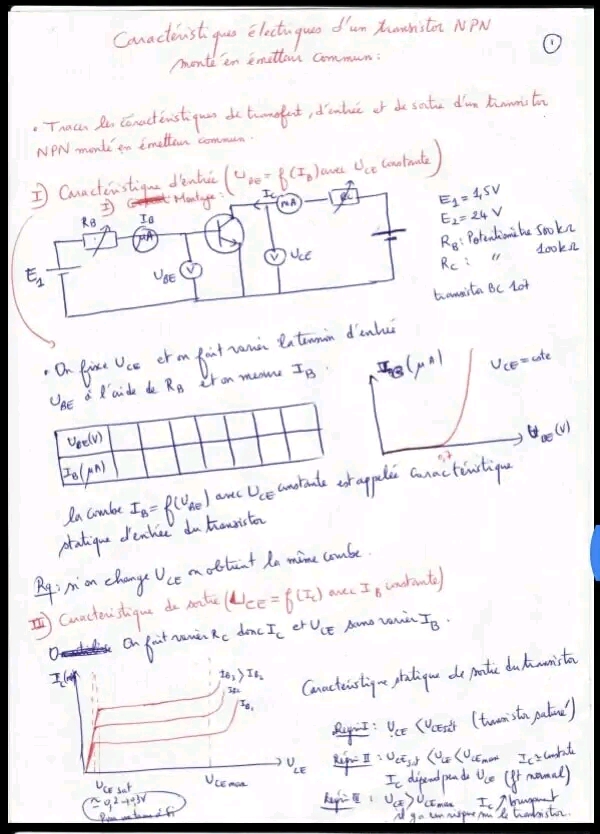 Caractéristiques électriques d'un transistor NPN
monté en émetteur commun :
1
• Tracer les caractéristiques de transfert, d'entrée et de sortie d'un transistor
NPN monté en émetteur commun.
I) Caractéristique d'entrée (UBE = f(IB) avec UCE constante)
1) Montage :
RB
IB
μA
IC
mA
RC
E1
UBE
V
V
UCE
E1 = 1,5V
E2 = 24 V
RB : Potentiomètre 500kΩ
RC : " 100kΩ
transistor BC 107
• On fixe UCE et on fait varier la tension d'entrée
UBE à l'aide de RB et on mesure IB.
UBE(V)
IB(μA)
IB(μA)
UCE = cste
0,7
UBE(V)
la courbe IB = f(UBE) avec UCE constante est appelée caractéristique
statique d'entrée du transistor
Rq : si on change UCE on obtient la même courbe.
III) Caractéristique de sortie (UCE = f(IC) avec IB constante)
On fait varier RC donc IC et UCE sans varier IB.
IB3 > IB2
IB2
IB1
UCE
UCE sat
UCE max
Caractéristique statique de sortie du transistor
Régi I : UCE < UCEsat (transistor saturé)
Régi II : UCEsat < UCE < UCEmax IC ≃ constate
IC dépend peu de UCE (ft normal)
Régi III : UCE > UCEmax IC ↗
il y a un risque sur le transistor.